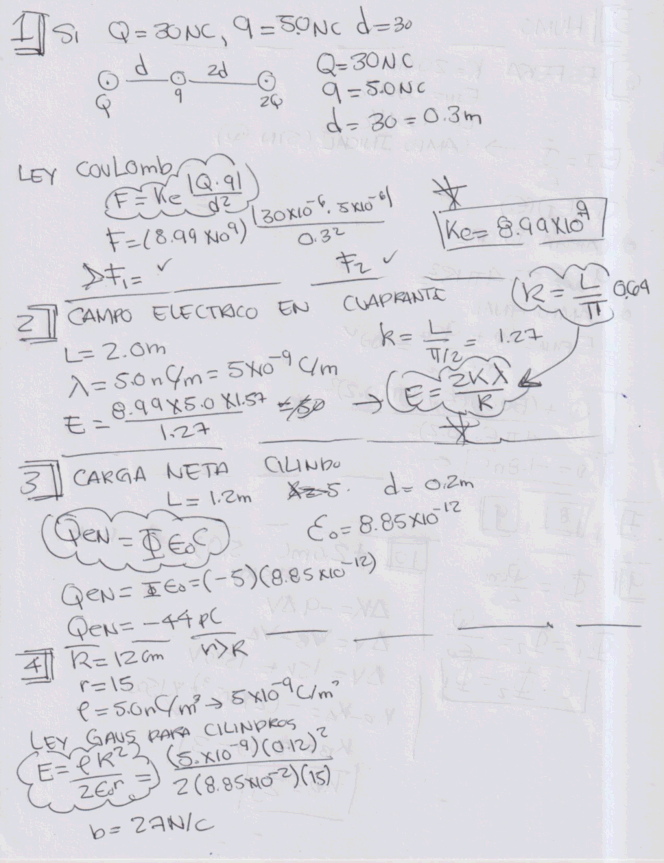 1 Si Q = 30NC, q = 50NC d = 30
d 2d
Q q 2Q
Q = 30NC
q = 5.0NC
d = 30 = 0.3m
LEY COULOMB
F = Ke |Q·q| / d²
F = (8.99 x10⁹) |30x10⁻⁶ · 5x10⁻⁶| / 0.3²
Ke = 8.99x10⁹
F₁ = ✓ F₂ ✓
2 CAMPO ELECTRICO EN CUADRANTE
L = 2.0m
R = L / π/2 = 1.27
R = L / π 0.64
λ = 5.0nC/m = 5x10⁻⁹ C/m
E = 8.99x5.0x1.57 / 1.27 → E = 2Kλ / R
3 CARGA NETA CILINDO
L = 1.2m d = 0.2m
Qen = Φε₀ ε₀ = 8.85x10⁻¹²
Qen = Φε₀ = (-5)(8.85x10⁻¹²)
Qen = -44pC
4 R = 12cm r>R
r = 15
ρ = 5.0nC/m³ → 5x10⁻⁹C/m³
LEY GAUS PARA CILINDROS
E = ρR² / 2ε₀r = (5.x10⁻⁹)(0.12)² / 2(8.85x10⁻²)(15)
b = 27N/C